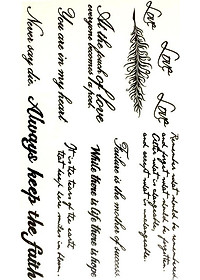 Love
Love
Love
Remember what should be remembered,
and forget what should be forgotten.
Alter what is changeable,
and accept what is unchangeable.
At the touch of love
everyone becomes a poet
Failure is the mother of success
You are in my heart
While there is life there is hope
It is the tears of the earth
that keep here smiles in bloom.
Never say die.
Always keep the faith